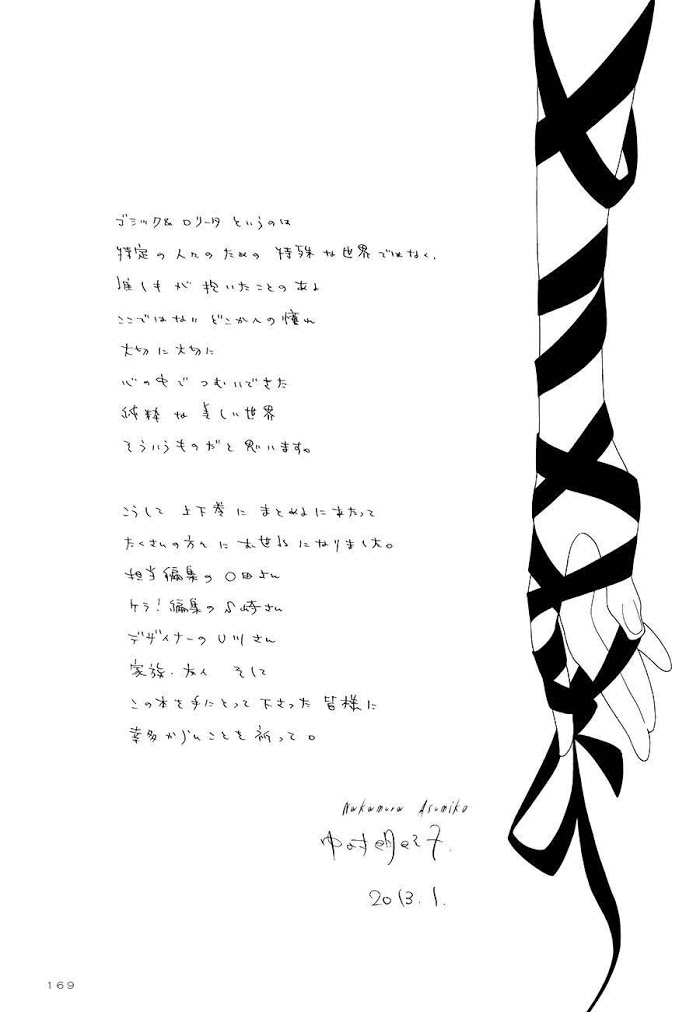 ゴシック&ロリータ というのは
特定の人々のための 特殊な世界ではなく、
誰しもが 抱いたことのある
ここではない どこかへの憧れ
大切に大切に
心の中で つむいできた
純粋な美しい世界
そういうものだと思います。
こうして 上下巻に まとめるにあたって
たくさんの方々に お世話になりました。
担当編集の〇田さん
ケラ!編集の 崎さん
デザイナーの 川さん
家族・友人 そして
この本を手にとって下さった 皆様に
幸多からんことを祈って。
Nakamura Asumiko
中村明日美子.
2013.1.
169